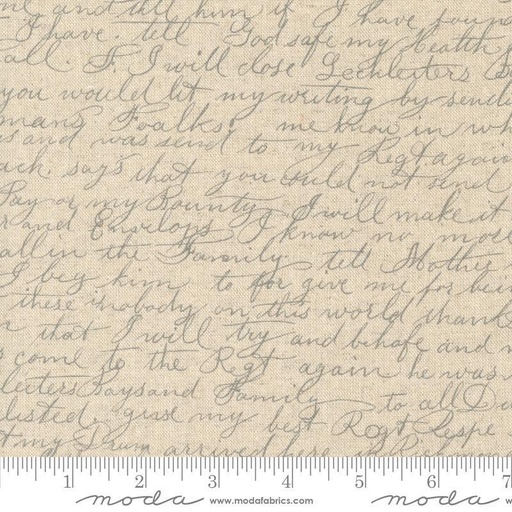 and tell him if I have found
I have. tell God safe my health
all. F. I will close Lechleiters
you would let my writing by sendi
mans Foalks. me know in wh
and was send to my Regt again
ack. says that you could not send
Pay or my Bounty I will make it
r and Envelops I know no more
all in the Fammily. tell Mother
I beg him to for give me for bei
these is nobody on this world thank
that I will try and behafe and
come to the Regt again he was
leiters Says and Family to all
listed, griss my best Regt Respe
my Drum arrived here in
1 2 3 4 5 6 7
moda www.modafabrics.com moda www.modafabrics.com moda